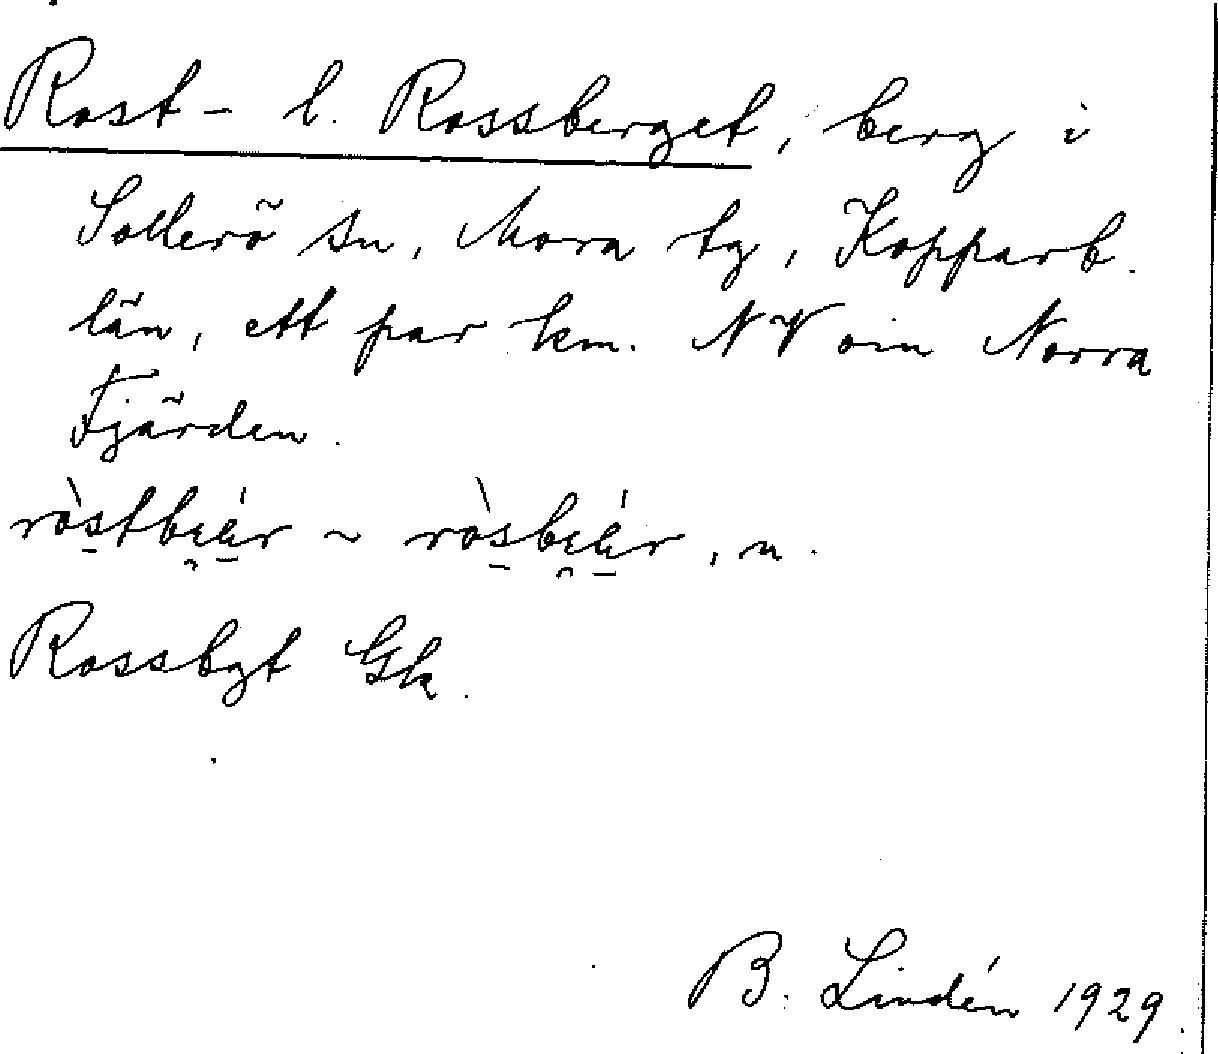 Rost- l. Rossberget, berg i
Sollerö sn, Mora tg, Kopparb.
län, ett par km. NV om Norra
Fjärden.
ròstbe̯ér ~ ròsbe̯ér, n.
Rossbgt Gk.
B. Lindén 1929.